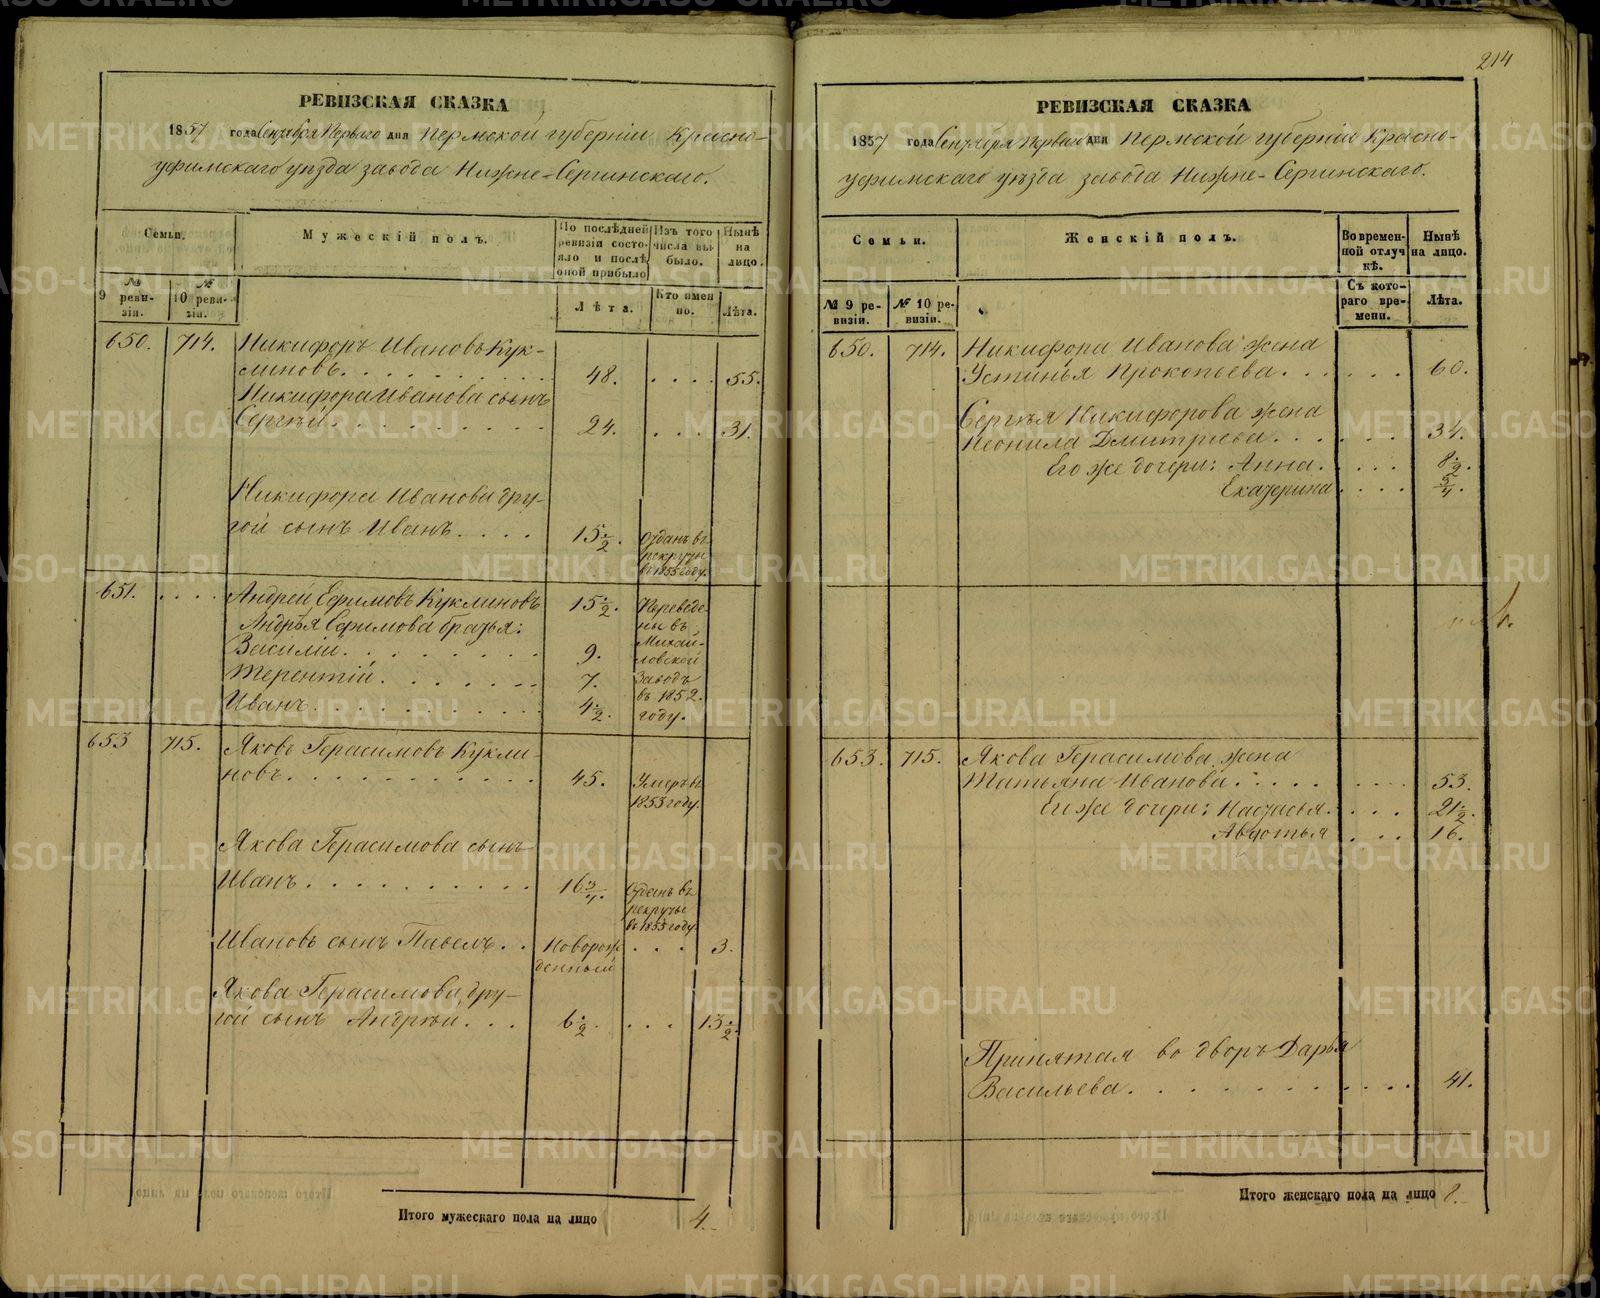 РЕВИЗСКАЯ СКАЗКА
1857 года Сентября Первого дня Пермской губернiи Красно-
уфимскаго уѣзда завода Нижне-Сергинскаго.
Семьи.
Мужескiй полъ.
По послѣдней ревизiи состояло и послѣ оной прибыло
Изъ того числа выбыло.
Нынѣ на лицо.
№ 9 ревизiи.
№ 10 ревизiи.
Лѣта.
Кто именно.
Лѣта.
650. 714. Никифоръ Ивановъ Кук-
линовъ. 48. 55.
Никифора Иванова сынъ
Сергѣй. 24. 31.
Никифора Иванова дру-
гой сынъ Иванъ. 15 1/2. Отданъ въ
рекруты
въ 1855 году.
651. Андрей Ефимовъ Куклиновъ 15 1/2. Переведе-
Андрѣя Ефимова братья: ны въ
Василiй. 9. Михай-
ловской
Терентiй. 7. Заводъ
въ 1852
Иванъ. 4 1/2. году.
653 715. Яковъ Герасимовъ Кукли-
новъ. 45. Умеръ въ
1853 году.
Якова Герасимова сынъ
Иванъ. 16 3/4. Отданъ въ
рекруты
въ 1855 году.
Ивановъ сынъ Павелъ. Новорож-
денный 3.
Якова Герасимова дру-
гой сынъ Андрѣй. 6 1/2. 13 1/2.
Итого мужескаго пола на лицо 4.
214
РЕВИЗСКАЯ СКАЗКА
1857 года Сентября Первого дня Пермской губернiи Красно-
уфимскаго уѣзда завода Нижне-Сергинскаго.
Семьи.
Женскiй полъ.
Во временной отлучкѣ.
Нынѣ на лицо.
№ 9 ревизiи.
№ 10 ревизiи.
Съ котораго времени.
Лѣта.
650. 714. Никифора Иванова жена
Устинья Прокопьева. 60.
Сергѣя Никифорова жена
Неонила Дмитрiева. 34.
Его же дочери: Анна. 8 1/2.
Екатерина 3/4.
653. 715. Якова Герасимова жена
Татьяна Иванова. 53.
Ея же дочери: Настасья. 21 1/2.
Авдотья 16.
Принятая во дворъ Дарья
Васильева. 41.
Итого женскаго пола на лицо 8.
METRIKI.GASO-URAL.RU